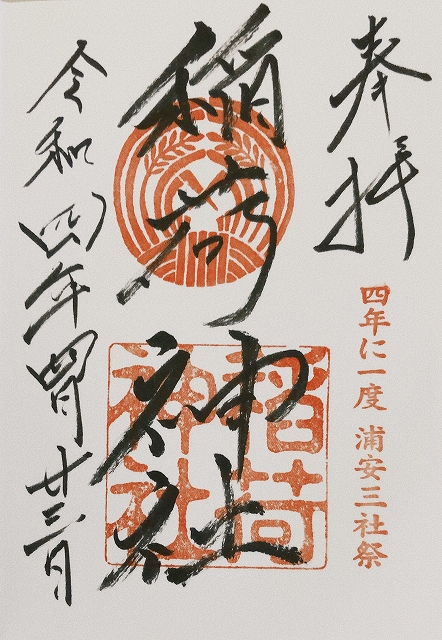 奉拝
四年に一度 浦安三社祭
稲荷神社
稲荷
神社
令和四年四月廿三日